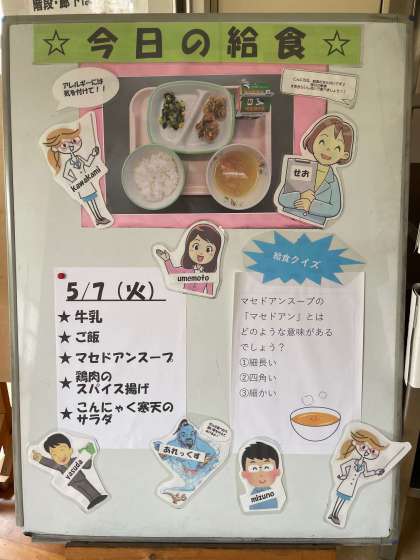 階段・廊下は
☆今日の給食☆
アレルギーには
気を付けて！！
kawakami
せお
umemoto
給食クイズ
5/7（火）
★ 牛乳
★ ご飯
★ マセドアンスープ
★ 鶏肉の
スパイス揚げ
★ こんにゃく寒天の
サラダ
マセドアンスープの
「マセドアン」とは
どのような意味がある
でしょう？
①細長い
②四角い
③細かい
yasuda
あれっくす
mizuno